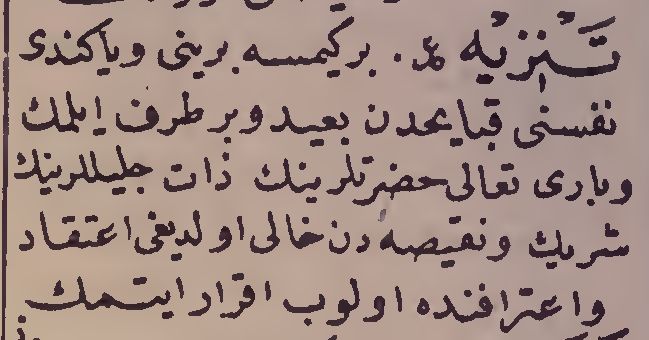 تَنْزِيْه ع. بركيمسه بريني وياكندى
نفسنى قبايحدن بعيد وبر طرف ايلمك
وبارى تعالى حضرتلرينك ذات جليللرينك
شريك ونقيصه دن خالى اولديغى اعتقاد
واعترافنده اولوب اقرار ايتمك